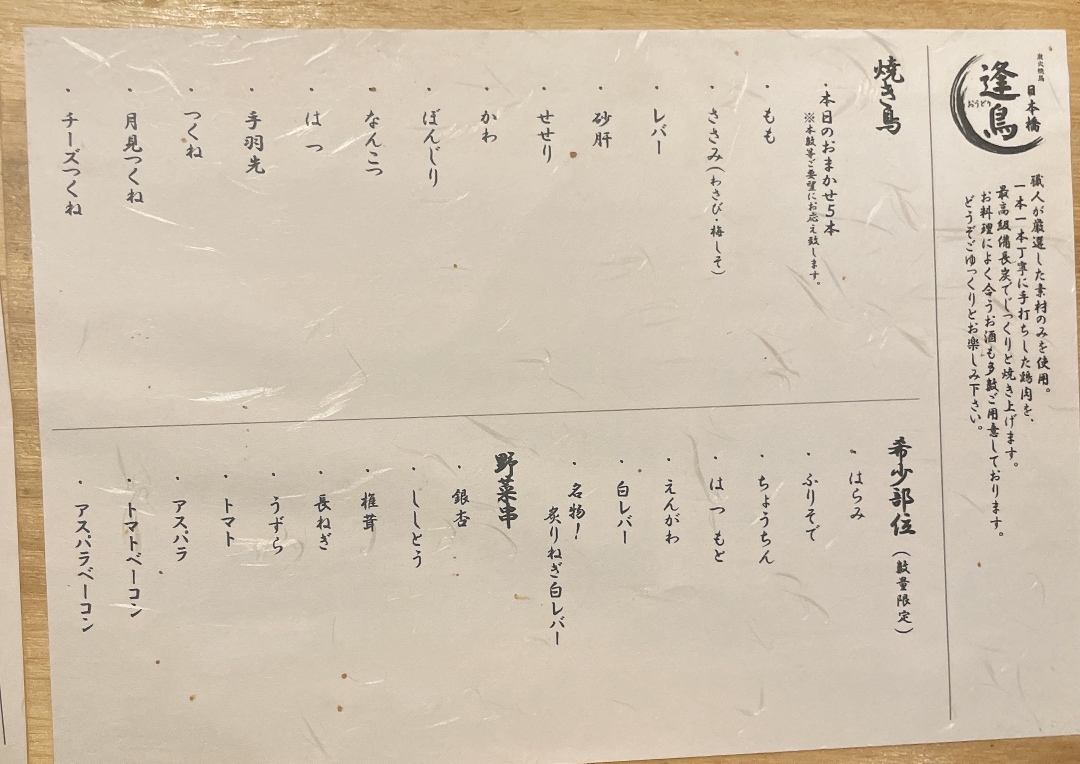 炭火焼鳥
日本橋
逢鳥
おうどり
職人が厳選した素材のみを使用。
一本一本丁寧に手打ちした鶏肉を、
最高級備長炭でじっくりと焼き上げます。
お料理によく合うお酒も多数ご用意しております。
どうぞごゆっくりとお楽しみ下さい。
焼き鳥
・本日のおまかせ5本
※本数等ご要望にお応え致します。
・もも
・ささみ(わさび・梅しそ)
・レバー
・砂肝
・せせり
・かわ
・ぼんじり
・なんこつ
・はつ
・手羽先
・つくね
・月見つくね
・チーズつくね
希少部位(数量限定)
・はらみ
・ふりそで
・ちょうちん
・はつもと
・えんがわ
・白レバー
・名物!
炙りねぎ白レバー
野菜串
・銀杏
・ししとう
・椎茸
・長ねぎ
・うずら
・トマト
・アスパラ
・トマトベーコン
・アスパラベーコン